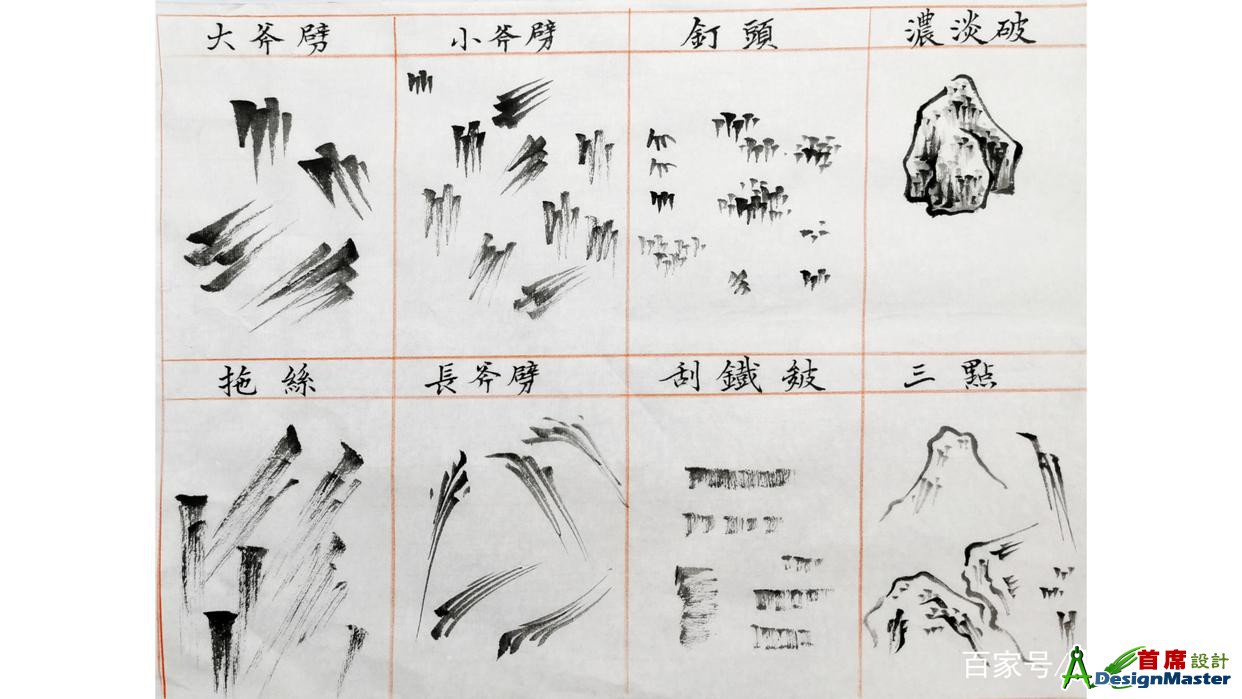 大斧劈 小斧劈 釘頭 濃淡破
拖絲 長斧劈 刮鐵皴 三點
百家号/
首席設計
DesignMaster